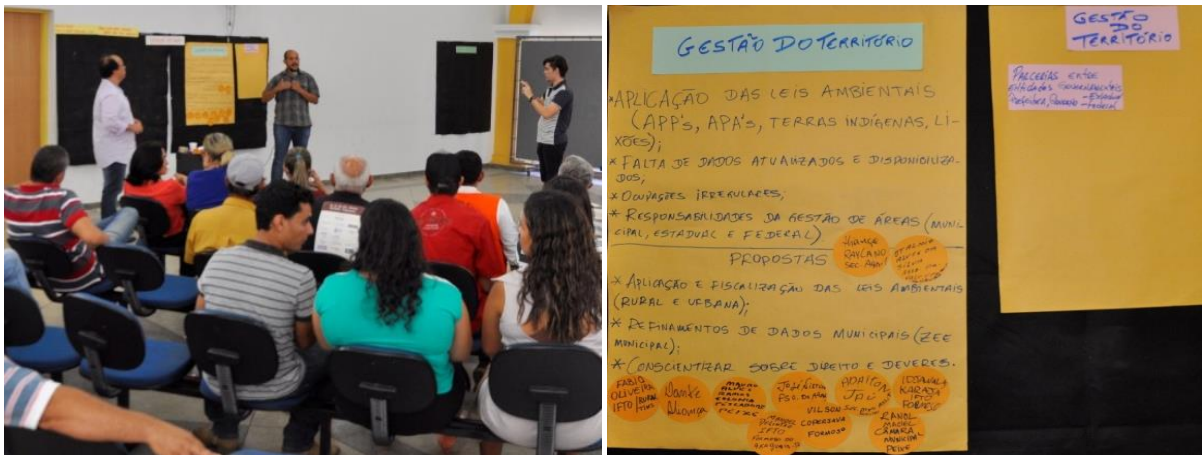 GESTÃO DO TERRITÓRIO
*APLICAÇÃO DAS LEIS AMBIENTAIS
(APP's, APA's, TERRAS INDÍGENAS, LI-
XÕES);
* FALTA DE DADOS ATUALIZADOS E DISPONIBILIZA-
DOS;
* OCUPAÇÕES IRREGULARES;
* RESPONSABILIDADES DA GESTÃO DE ÁREAS (MUNI-
CIPAL, ESTADUAL E FEDERAL)
PROPOSTAS
* APLICAÇÃO E FISCALIZAÇÃO DAS LEIS AMBIENTAIS
(RURAL E URBANA);
* REFINAMENTOS DE DADOS MUNICIPAIS (ZEE
MUNICIPAL);
* CONSCIENTIZAR SOBRE DIREITO E DEVERES.
FABIO
OLIVEIRA
IFTO
MARCOS
ALVES
RAMOS
COLONIA
PESCADORES
PEIXE
ADAILTON
JAÚ
KARAJÁ
IFTO
FORMOSO
VILSON
COPERJAVA
FORMOSO
IFTO
FORMOSO DO
ARAGUAIA-TO
CÂMARA
MUNICIPAL
PEIXE
GESTÃO
DO
TERRITÓRIO
PARCERIAS ENTRE
ENTIDADES GOVERNAMENTAIS